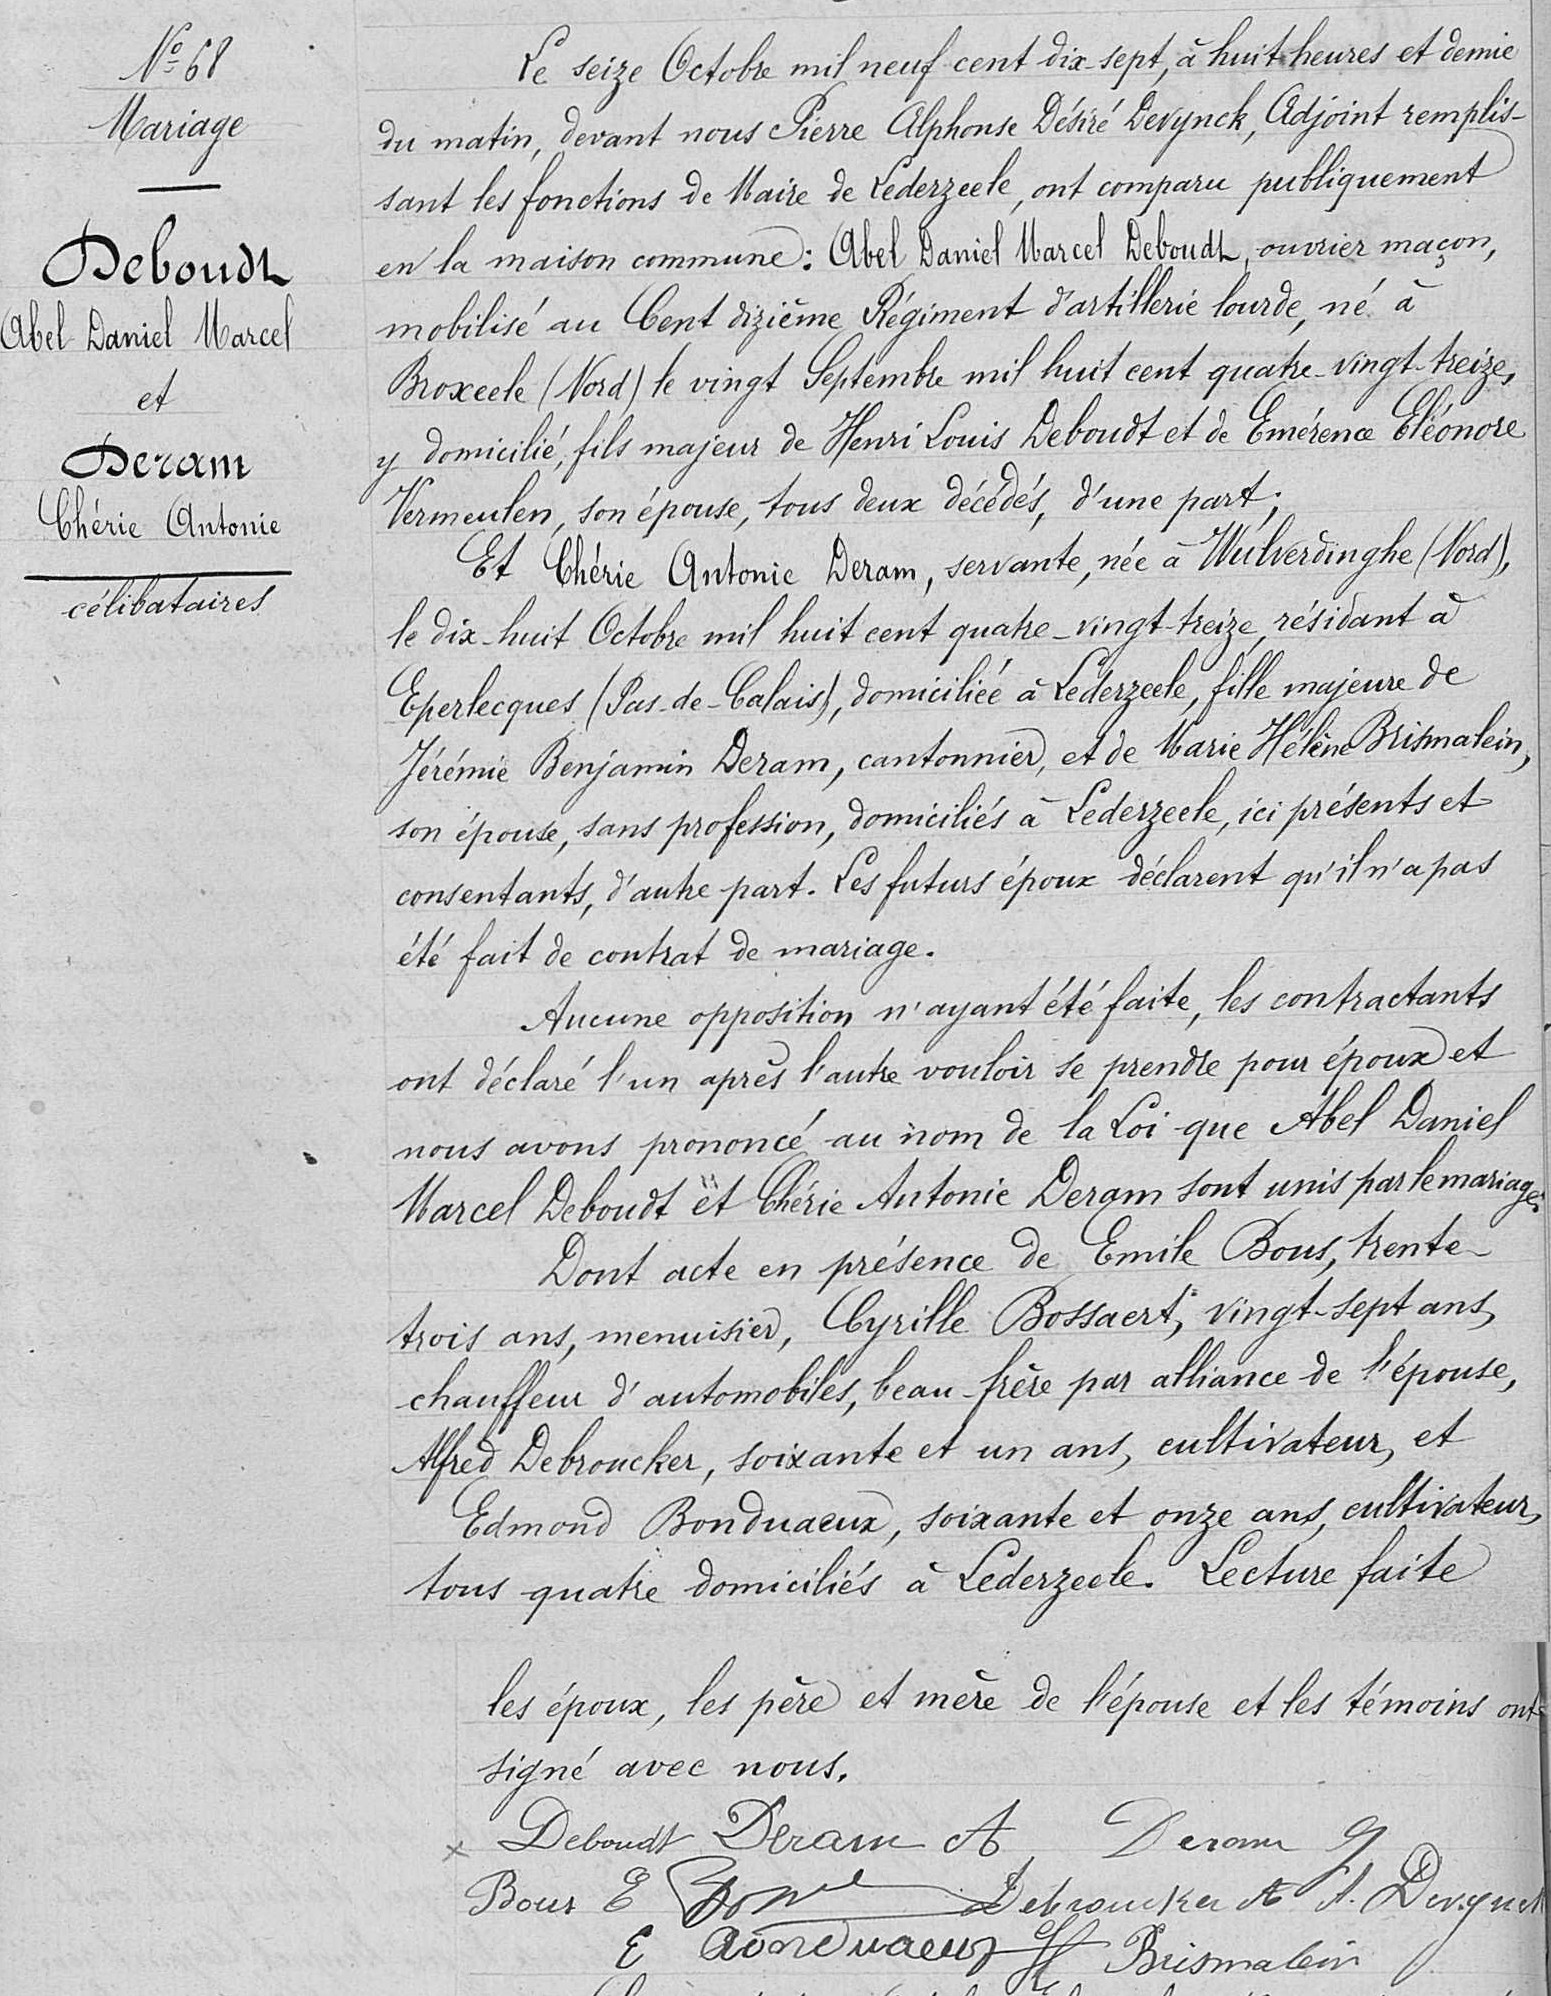 Nº 68
Mariage
Deboudt
Abel Daniel Marcel
et
Deram
Chérie Antonie
célibataires
Le seize Octobre mil neuf cent dix-sept, à huit heures et demie
du matin, devant nous Pierre Alphonse Désiré Devynck, Adjoint remplis-
sant les fonctions de Maire de Lederzeele, ont comparu publiquement
en la maison commune : Abel Daniel Marcel Deboudt, ouvrier maçon,
mobilisé au Cent dizième Régiment d'artillerie lourde, né à
Broxeele (Nord) le vingt Septembre mil huit cent quatre-vingt-treize,
y domicilié, fils majeur de Henri Louis Deboudt et de Emérence Eléonore
Vermeulen, son épouse, tous deux décédés, d'une part ;
Et Chérie Antonie Deram, servante, née à Wulverdinghe (Nord),
le dix-huit Octobre mil huit cent quatre-vingt-treize, résidant à
Eperlecques (Pas-de-Calais), domiciliée à Lederzeele, fille majeure de
Jérémie Benjamin Deram, cantonnier, et de Marie Hélène Brismalein,
son épouse, sans profession, domiciliés à Lederzeele, ici présents et
consentants, d'autre part. Les futurs époux déclarent qu'il n'a pas
été fait de contrat de mariage.
Aucune opposition n'ayant été faite, les contractants
ont déclaré l'un après l'autre vouloir se prendre pour époux et
nous avons prononcé au nom de la Loi que Abel Daniel
Marcel Deboudt et Chérie Antonie Deram sont unis par le mariage.
Dont acte en présence de Emile Bous, trente-
trois ans, menuisier, Cyrille Bossaert, vingt-sept ans,
chauffeur d'automobiles, beau-frère par alliance de l'épouse,
Alfred Debroucker, soixante et un ans, cultivateur, et
Edmond Bonduaeux, soixante et onze ans, cultivateur,
tous quatre domiciliés à Lederzeele. Lecture faite
les époux, les père et mère de l'épouse et les témoins ont
signé avec nous.
x Deboudt Deram A Deram J
Bous E Debroucker A A. Devynck
E Bonduaeux H Brismalein